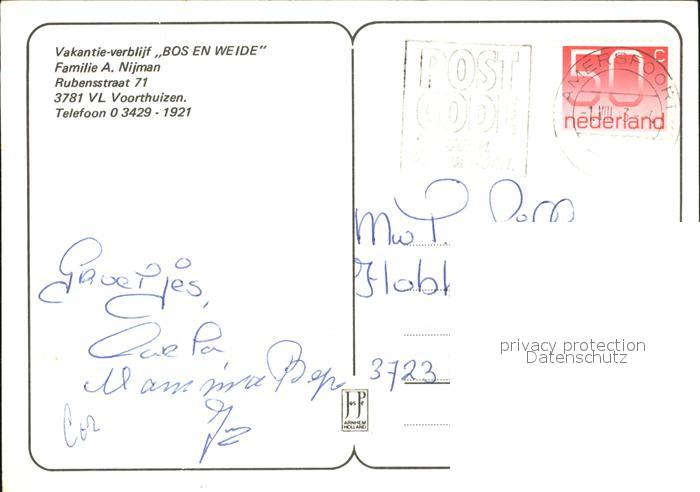 Vakantie-verblijf „BOS EN WEIDE”
Familie A. Nijman
Rubensstraat 71
3781 VL Voorthuizen.
Telefoon 0 3429 - 1921
POST
CODE
50 c
nederland
AMERSFOORT
Groetjes,
Carla
Mamma Bep
Cor
Mw
3723
JosPé
ARNHEM
HOLLAND
privacy protection
Datenschutz